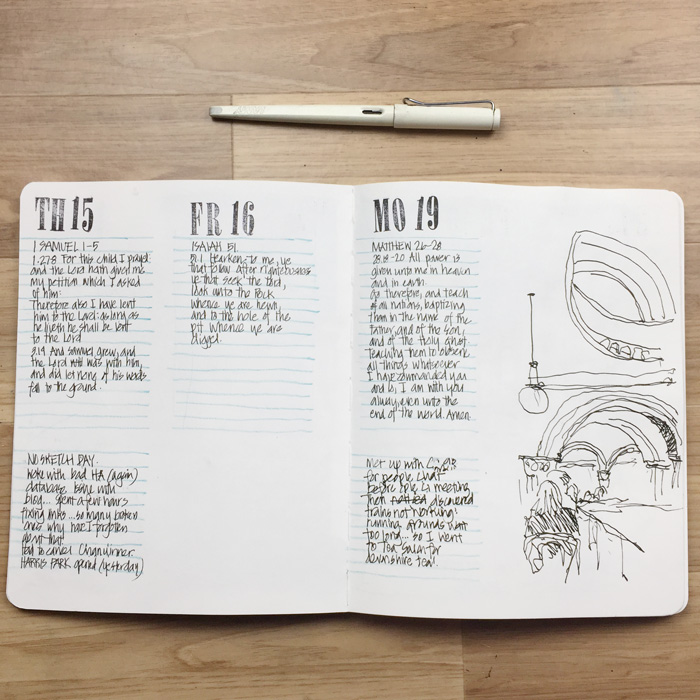 TH 15
I SAMUEL 1-5
1.27-8 For this child I prayed:
and the Lord hath given me
my petition which I asked
of him:
Therefore also I have lent
him to the Lord: as long as
he liveth he shall be lent
to the Lord
3.19 And Samuel grew, and
the Lord was with him,
and did let none of his words
fall to the ground.
NO SKETCH DAY.
Woke with bad HA (again)
database issue with
blog... spent a few hours
fixing links... so many broken
ones why had I forgotten
about that
had to cancel dinner
HARRIS PARK opened (yesterday)
FR 16
ISAIAH 51
51.1 Hearken to me, ye
that follow after righteousness
ye that seek the Lord,
look unto the Rock
whence ye are hewn,
and to the hole of the
pit whence ye are
digged.
MO 19
MATTHEW 26-28
28.18-20 All power is
given unto me in heaven
and in earth.
Go therefore, and teach
all nations, baptizing
them in the name of the
father, and of the son,
and of the Holy Ghost
teaching them to observe
all things whatsoever
I have commanded you
and lo, I am with you
alway, even unto the
end of the world. Amen.
Met up with
for people chat
before meeting
then discovered
trains not working!
running grounds
too long... so I went
to Tea Salon for
devonshire tea!